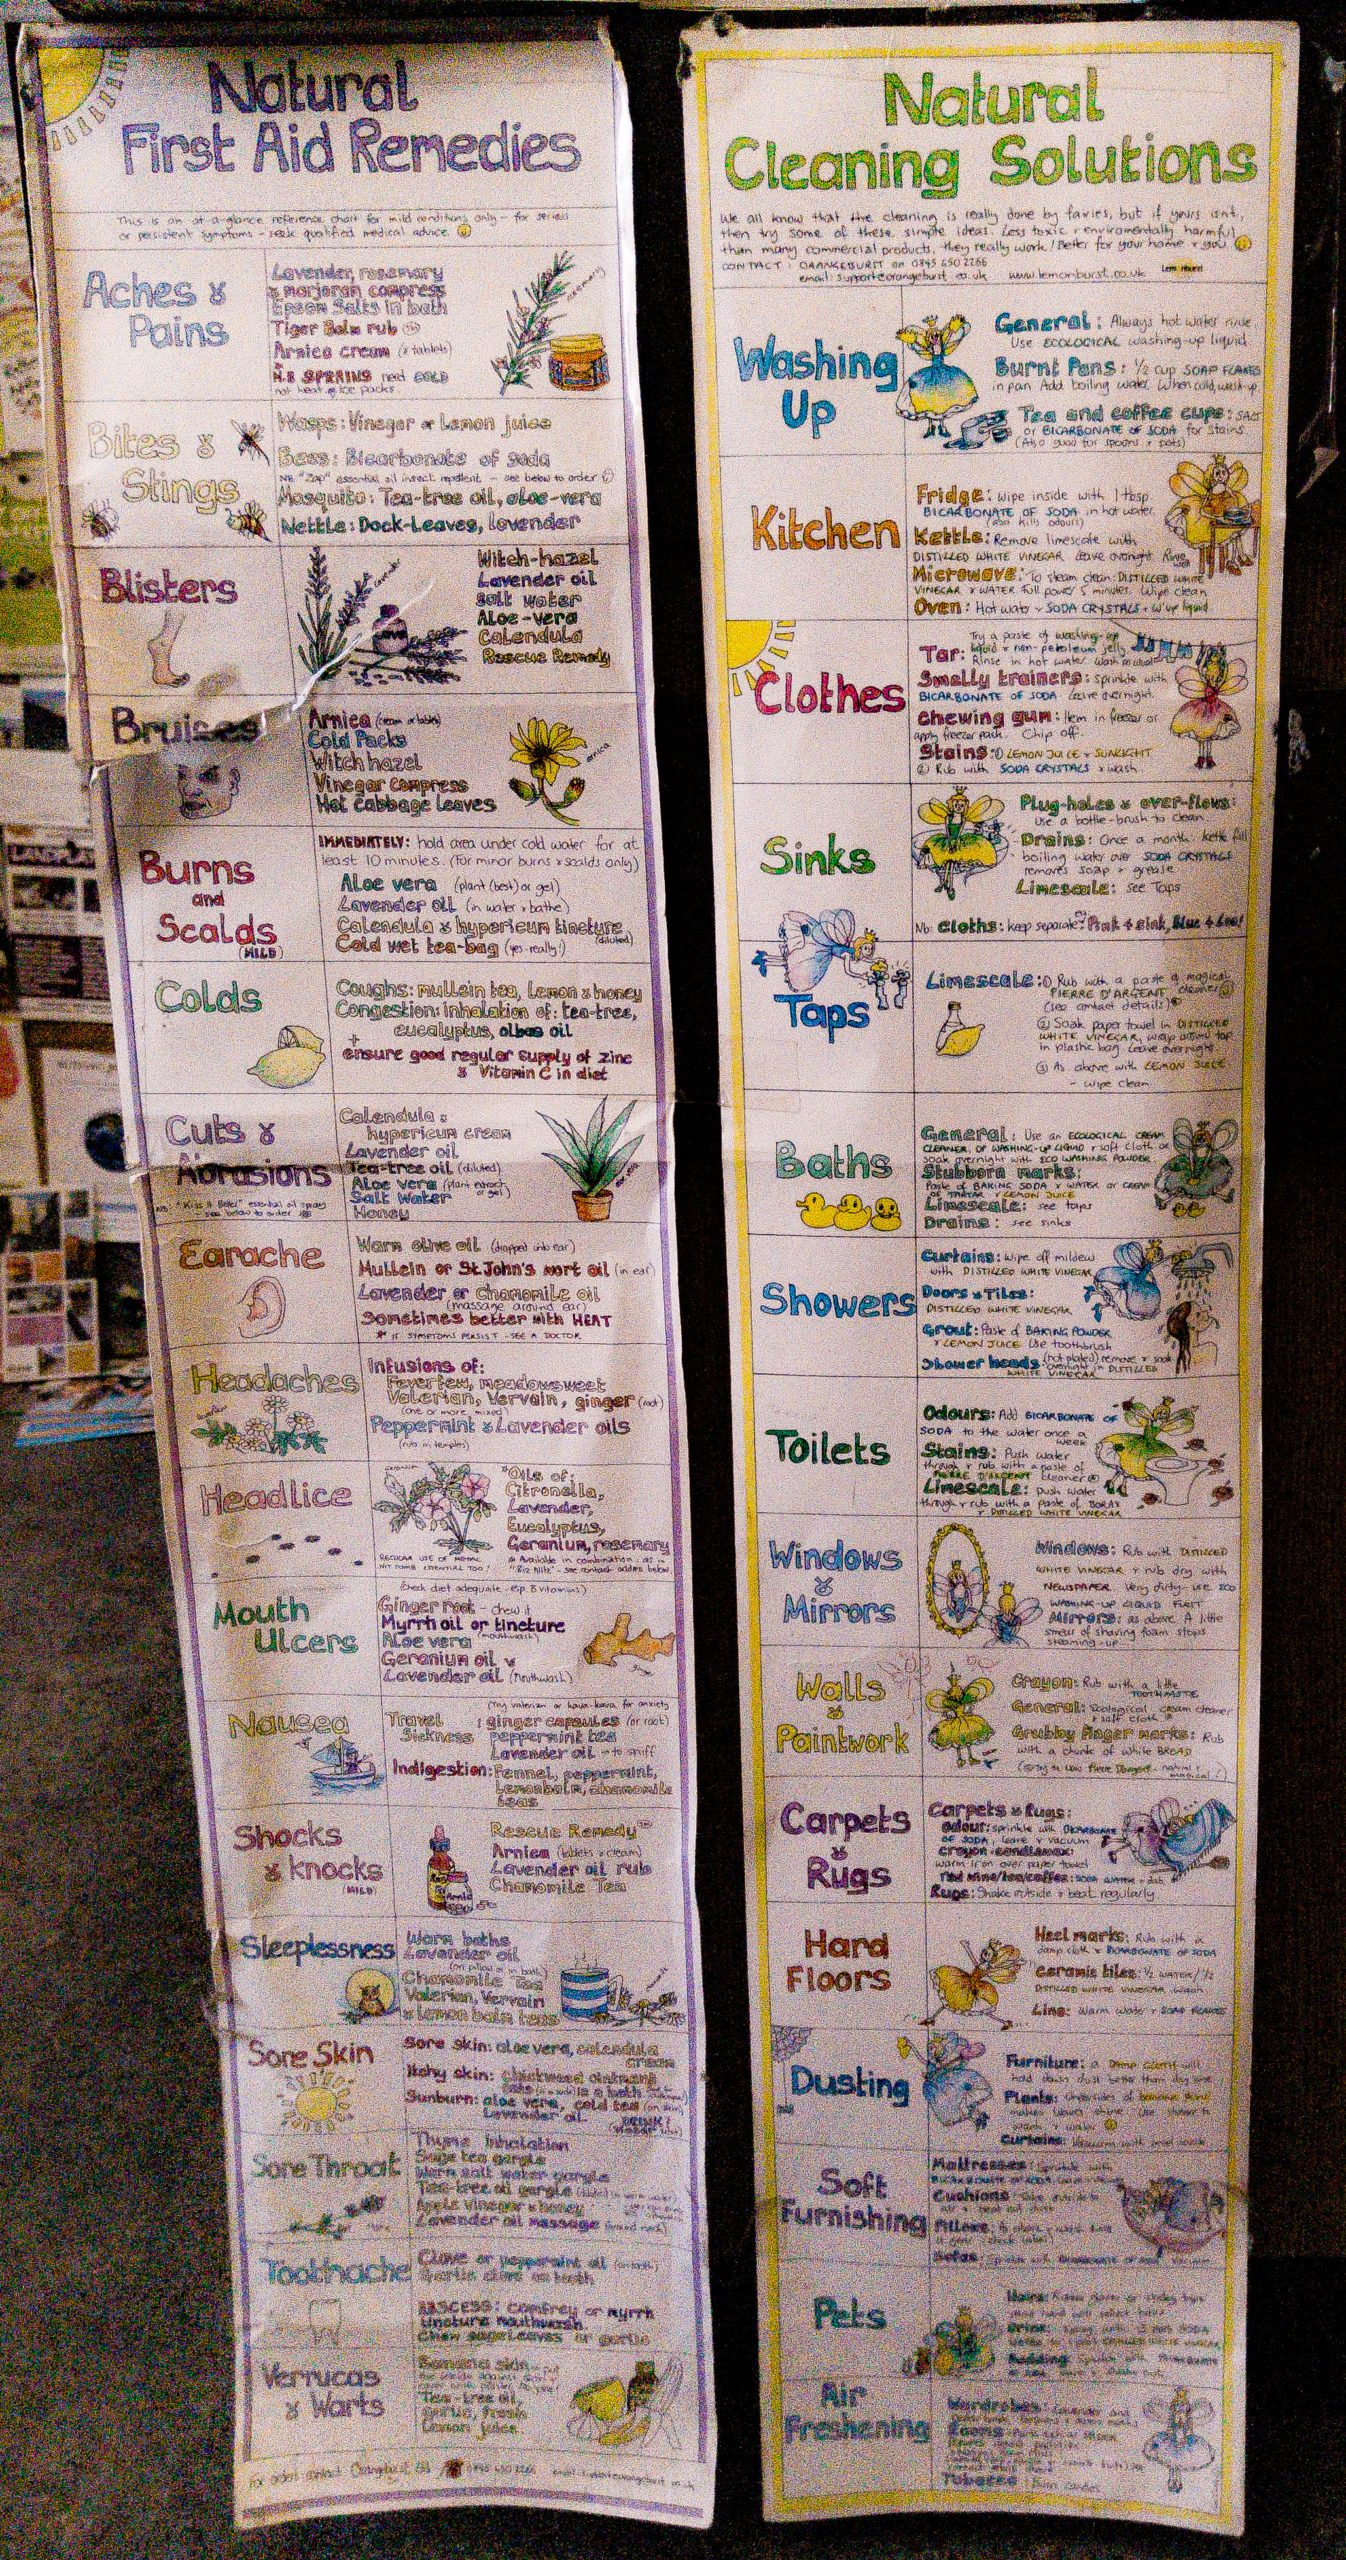 Natural
First Aid Remedies
This is an at-a-glance reference chart for mild conditions only - for serious
or persistent symptoms - seek qualified medical advice
Aches &
Pains
Lavender, rosemary
& marjoram compress
Epsom Salts in bath
Tiger Balm rub
Arnica cream (& tablets)
N.B SPRAINS need COLD
not heat eg ice packs
rosemary
Bites &
Stings
Wasps: Vinegar or Lemon juice
Bees: Bicarbonate of soda
NB "Zap" essential oil insect repellent - see below to order
Mosquito: Tea-tree oil, aloe-vera
Nettle: Dock-Leaves, lavender
Blisters
lavender
Witch-hazel
Lavender oil
Salt water
Aloe-vera
Calendula
Rescue Remedy
Bruises
Arnica (cream or tablets)
Cold Packs
Witch hazel
Vinegar compress
Hot cabbage leaves
arnica
Burns
and
Scalds
(MILD)
IMMEDIATELY: hold area under cold water for at
least 10 minutes. (For minor burns & scalds only)
Aloe vera (plant (best) or gel)
Lavender oil (in water & bathe)
Calendula & hypericum tincture
(diluted)
Cold wet tea-bag (yes-really!)
Colds
Coughs: mullein tea, Lemon & honey
Congestion: inhalation of: tea-tree,
eucalyptus, olbas oil
+
ensure good regular supply of zinc
& Vitamin C in diet
Cuts &
Abrasions
NB: "Kiss it Better" essential oil spray
see below to order
Calendula &
hypericum cream
Lavender oil
Tea-tree oil (diluted)
Aloe vera (plant extract
or gel)
Salt Water
Honey
aloe vera
Earache
Warm olive oil (dropped into ear)
Mullein or St. John's wort oil (in ear)
Lavender or chamomile oil
(massage around ear)
Sometimes better with HEAT
* IF SYMPTOMS PERSIST - SEE A DOCTOR
Headaches
Infusions of:
Feverfew, meadowsweet
Valerian, Vervain, ginger (root)
(one or more mixed)
Peppermint & Lavender oils
(rub in temples)
Headlice
geranium
Oils of:
Citronella,
Lavender,
Eucalyptus,
Geranium, rosemary
REGULAR USE OF METAL
NIT COMB ESSENTIAL TOO!
* Available in combination as
"Biz Nitz" - see contact address below
Mouth
Ulcers
(check diet adequate - esp. B vitamins)
Ginger root - chew it
Myrrh oil or tincture
(mouthwash)
Aloe vera
Geranium oil &
Lavender oil (mouthwash)
ginger
Nausea
(Try valerian or kava-kava for anxiety)
Travel
Sickness
: ginger capsules (or root)
peppermint tea
Lavender oil - to sniff
Indigestion: Fennel, peppermint,
Lemonbalm, chamomile
teas
Shocks
& knocks
(MILD)
Rescue Remedy
Arnica (tablets & cream)
Lavender oil rub
Chamomile Tea
Sleeplessness
Warm baths
Lavender oil
(on pillow or in bath)
Chamomile Tea
Valerian, Vervain
& Lemon balm teas
Sore Skin
Sore skin: aloe vera, calendula
cream
Itchy skin: chickweed ointment
Sunburn: aloe vera, cold tea (on skin)
Lavender oil
Sore Throat
Thyme inhalation
Sage tea gargle
Warm salt water gargle
Tea-tree oil gargle
Apple vinegar & honey
Lavender oil massage (around neck)
Toothache
Clove or peppermint oil (on tooth)
Garlic clove on tooth
ABSCESS: comfrey or myrrh
tincture mouthwash
Chew sage leaves or garlic
Verrucas
& Warts
Banana skin - put
Tea-tree oil,
Garlic, fresh
Lemon juice
Natural
Cleaning Solutions
We all know that the cleaning is really done by fairies, but if yours isn't,
then try some of these simple ideas. Less toxic & enviromentally harmful
than many commercial products, they really work! Better for your home & you
CONTACT: ORANGEBURST on 0845 650 2266
email: support@orangeburst.co.uk www.lemonburst.co.uk
Washing
Up
General: Always hot water rinse.
Use ECOLOGICAL washing-up liquid
Burnt Pans: 1/2 cup SOAP FLAKES
in pan. Add boiling water. When cold, wash-up.
Tea and coffee cups: SALT
or BICARBONATE OF SODA for stains
(Also good for spoons & pots)
Kitchen
Fridge: wipe inside with 1 tbsp.
BICARBONATE OF SODA in hot water.
(also kills odours)
Kettle: Remove limescale with
DISTILLED WHITE VINEGAR. Leave overnight. Rinse
Microwave: To steam clean: DISTILLED WHITE
VINEGAR & WATER full power 5 minutes. Wipe clean
Oven: Hot water & SODA CRYSTALS + w'up liquid
Clothes
Tar: Try a paste of washing-up
liquid & non-petroleum jelly
Rinse in hot water.
Smelly trainers: sprinkle with
BICARBONATE OF SODA. Leave overnight.
Chewing gum: Item in freezer or
apply freezer pack. Chip off.
Stains: ① LEMON JUICE & SUNLIGHT
② Rub with SODA CRYSTALS & wash
Sinks
Plug-holes & over-flows:
Use a bottle-brush to clean
Drains: Once a month, kettle full
boiling water over SODA CRYSTALS
removes soap & grease
Limescale: see Taps
Nb: Cloths: keep separate: Pink 4 sink, Blue 4 Loo!
Taps
Limescale: ① Rub with a paste & magical
PIERRE D'ARGENT cleaner
(see contact details)
② Soak paper towel in DISTILLED
WHITE VINEGAR, wrap around tap
in plastic bag. Leave overnight.
③ As above with LEMON JUICE
- wipe clean
Baths
General: Use an ECOLOGICAL CREAM
CLEANER, OR WASHING-UP LIQUID & soft cloth or
soak overnight with ECO WASHING POWDER
Stubborn marks:
Paste of BAKING SODA & WATER or CREAM
OF TARTAR & LEMON JUICE
Limescale: see taps
Drains: see sinks
Showers
Curtains: wipe off mildew
with DISTILLED WHITE VINEGAR
Doors & Tiles:
DISTILLED WHITE VINEGAR
Grout: Paste of BAKING POWDER
& LEMON JUICE. Use toothbrush
Shower heads (not plated) remove & soak
overnight in DISTILLED
WHITE VINEGAR
Toilets
Odours: Add BICARBONATE OF
SODA to the water once a
week
Stains: Push water
through & rub with a paste of
PIERRE D'ARGENT cleaner
Limescale: push water
through & rub with a paste of BORAX
& DISTILLED WHITE VINEGAR
Windows
&
Mirrors
Windows: Rub with DISTILLED
WHITE VINEGAR & rub dry with
NEWSPAPER. Very dirty - use ECO
WASHING-UP LIQUID FIRST
Mirrors: as above. A little
smear of shaving foam stops
steaming-up
Walls
&
Paintwork
Crayon: Rub with a little
TOOTHPASTE
General: Ecological cream cleaner
& soft cloth
Grubby finger marks: Rub
with a chunk of white BREAD
Carpets
&
Rugs
Carpets & Rugs:
Odour: sprinkle with BICARBONATE
OF SODA, leave & vacuum
Crayon & candlewax:
warm iron over paper towel
Red wine/tea/coffee: SODA WATER & dab
Rugs: Shake outside & beat regularly
Hard
Floors
Heel marks: Rub with a
damp cloth & BICARBONATE OF SODA
Ceramic tiles: 1/2 WATER / 1/2
DISTILLED WHITE VINEGAR wash
Lino: Warm water & SOAP FLAKES
Dusting
Furniture: a DAMP CLOTH will
hold down dust better than dry one
Plants:
Curtains: Vacuum with
Soft
Furnishing
Mattresses: Sprinkle with
Cushions:
Pillows:
Sofas:
Pets
Hairs:
Bedding:
Air
Freshening
Wardrobes: Lavender and
Rooms:
Tobacco: